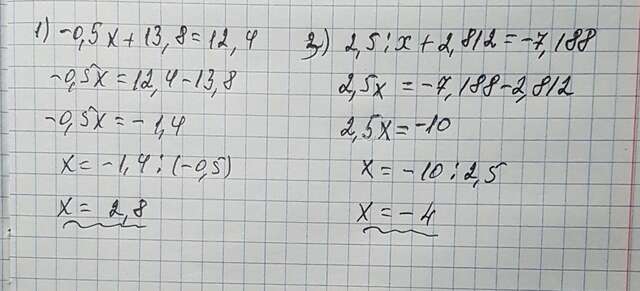 1) -0,5x + 13,8 = 12,4
-0,5x = 12,4 - 13,8
-0,5x = - 1,4
x = -1,4 : (-0,5)
x = 2,8
2) 2,5 : x + 2,812 = -7,188
2,5x = -7,188 - 2,812
2,5x = -10
x = -10 : 2,5
x = - 4